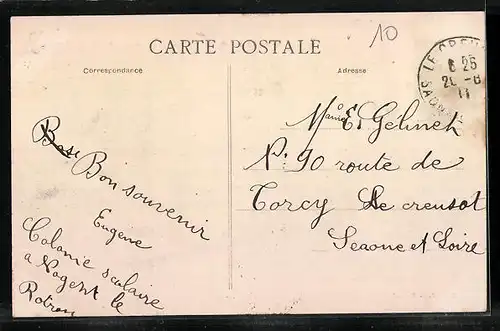 CARTE POSTALE
10
Correspondance
Adresse
LE CREUS
6 25
SAONE
Bon souvenir
Eugène
Colonie scolaire
a Nogent le
Rotrou
E. Gélinet
N: 90 route de
Torcy Le creusot
Seaone et Loire